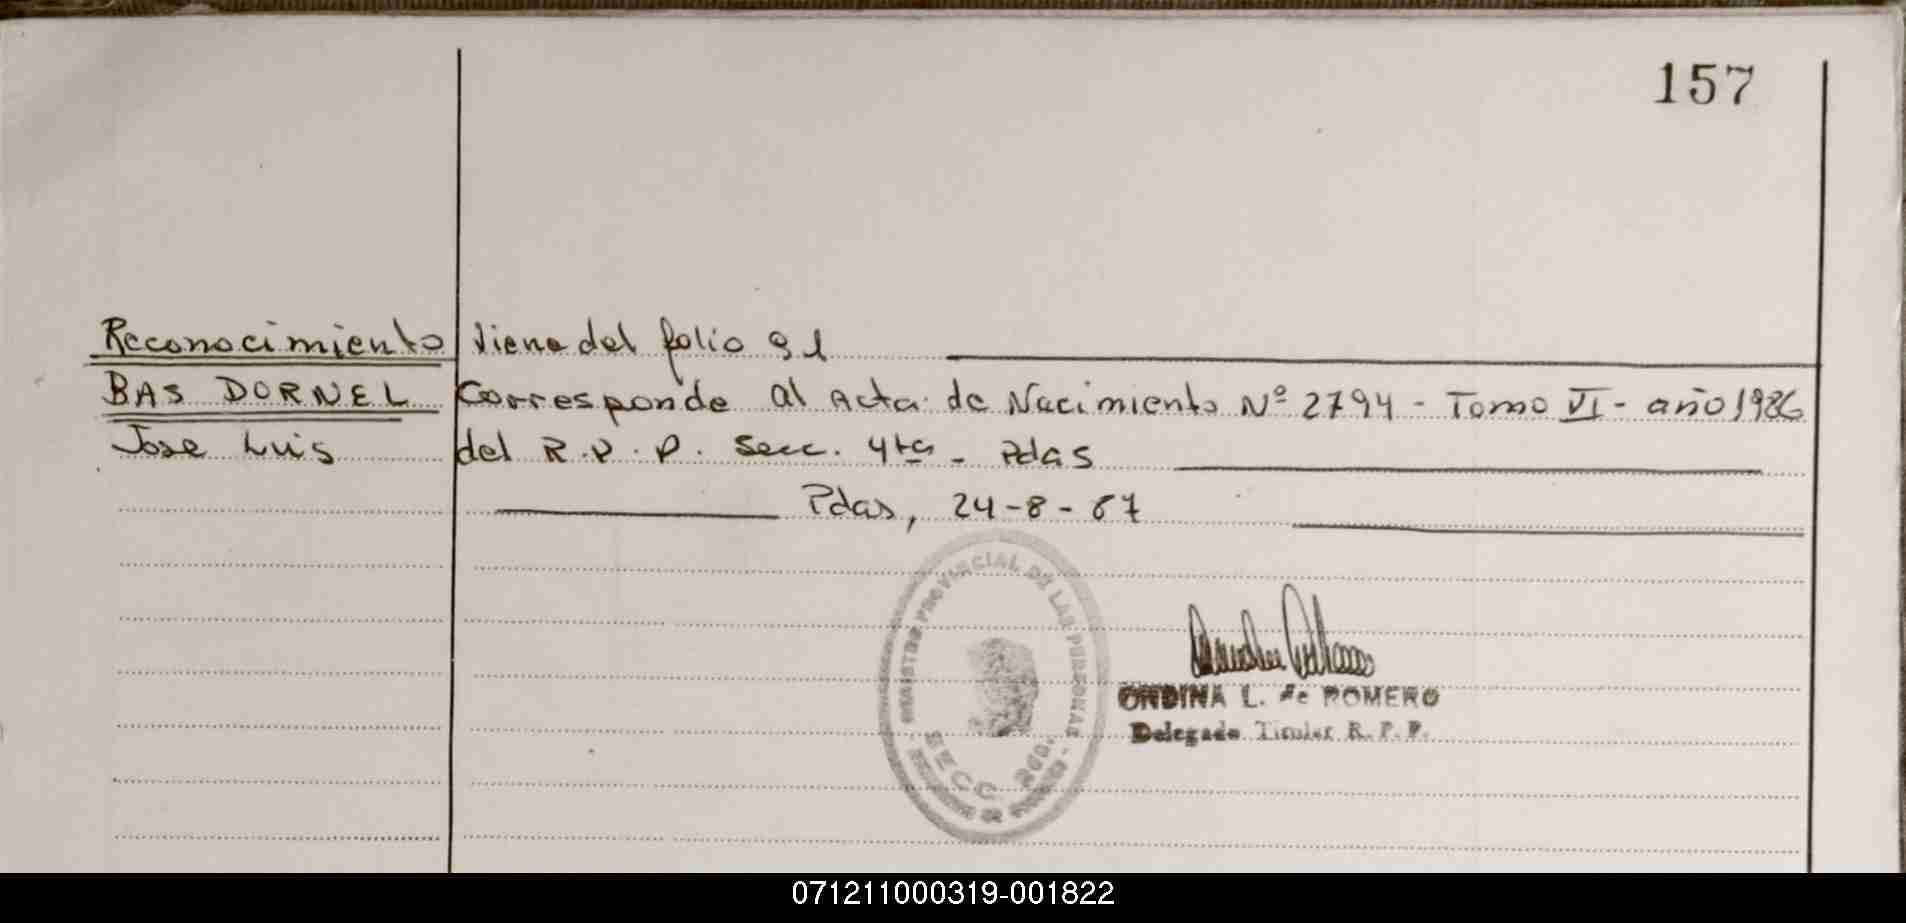 157
Reconocimiento Viene del folio 91
BAS DORNEL Corresponde al Acta de Nacimiento Nº 2794 - Tomo VI - año 1986
Jose Luis del R.P.P. Secc. 4ta - Pdas
Pdas, 24-8-87
REGISTRO PROVINCIAL DE LAS PERSONAS
SECC. 2da.
ONDINA L. de ROMERO
Delegado Titular R.P.P.
071211000319-001822